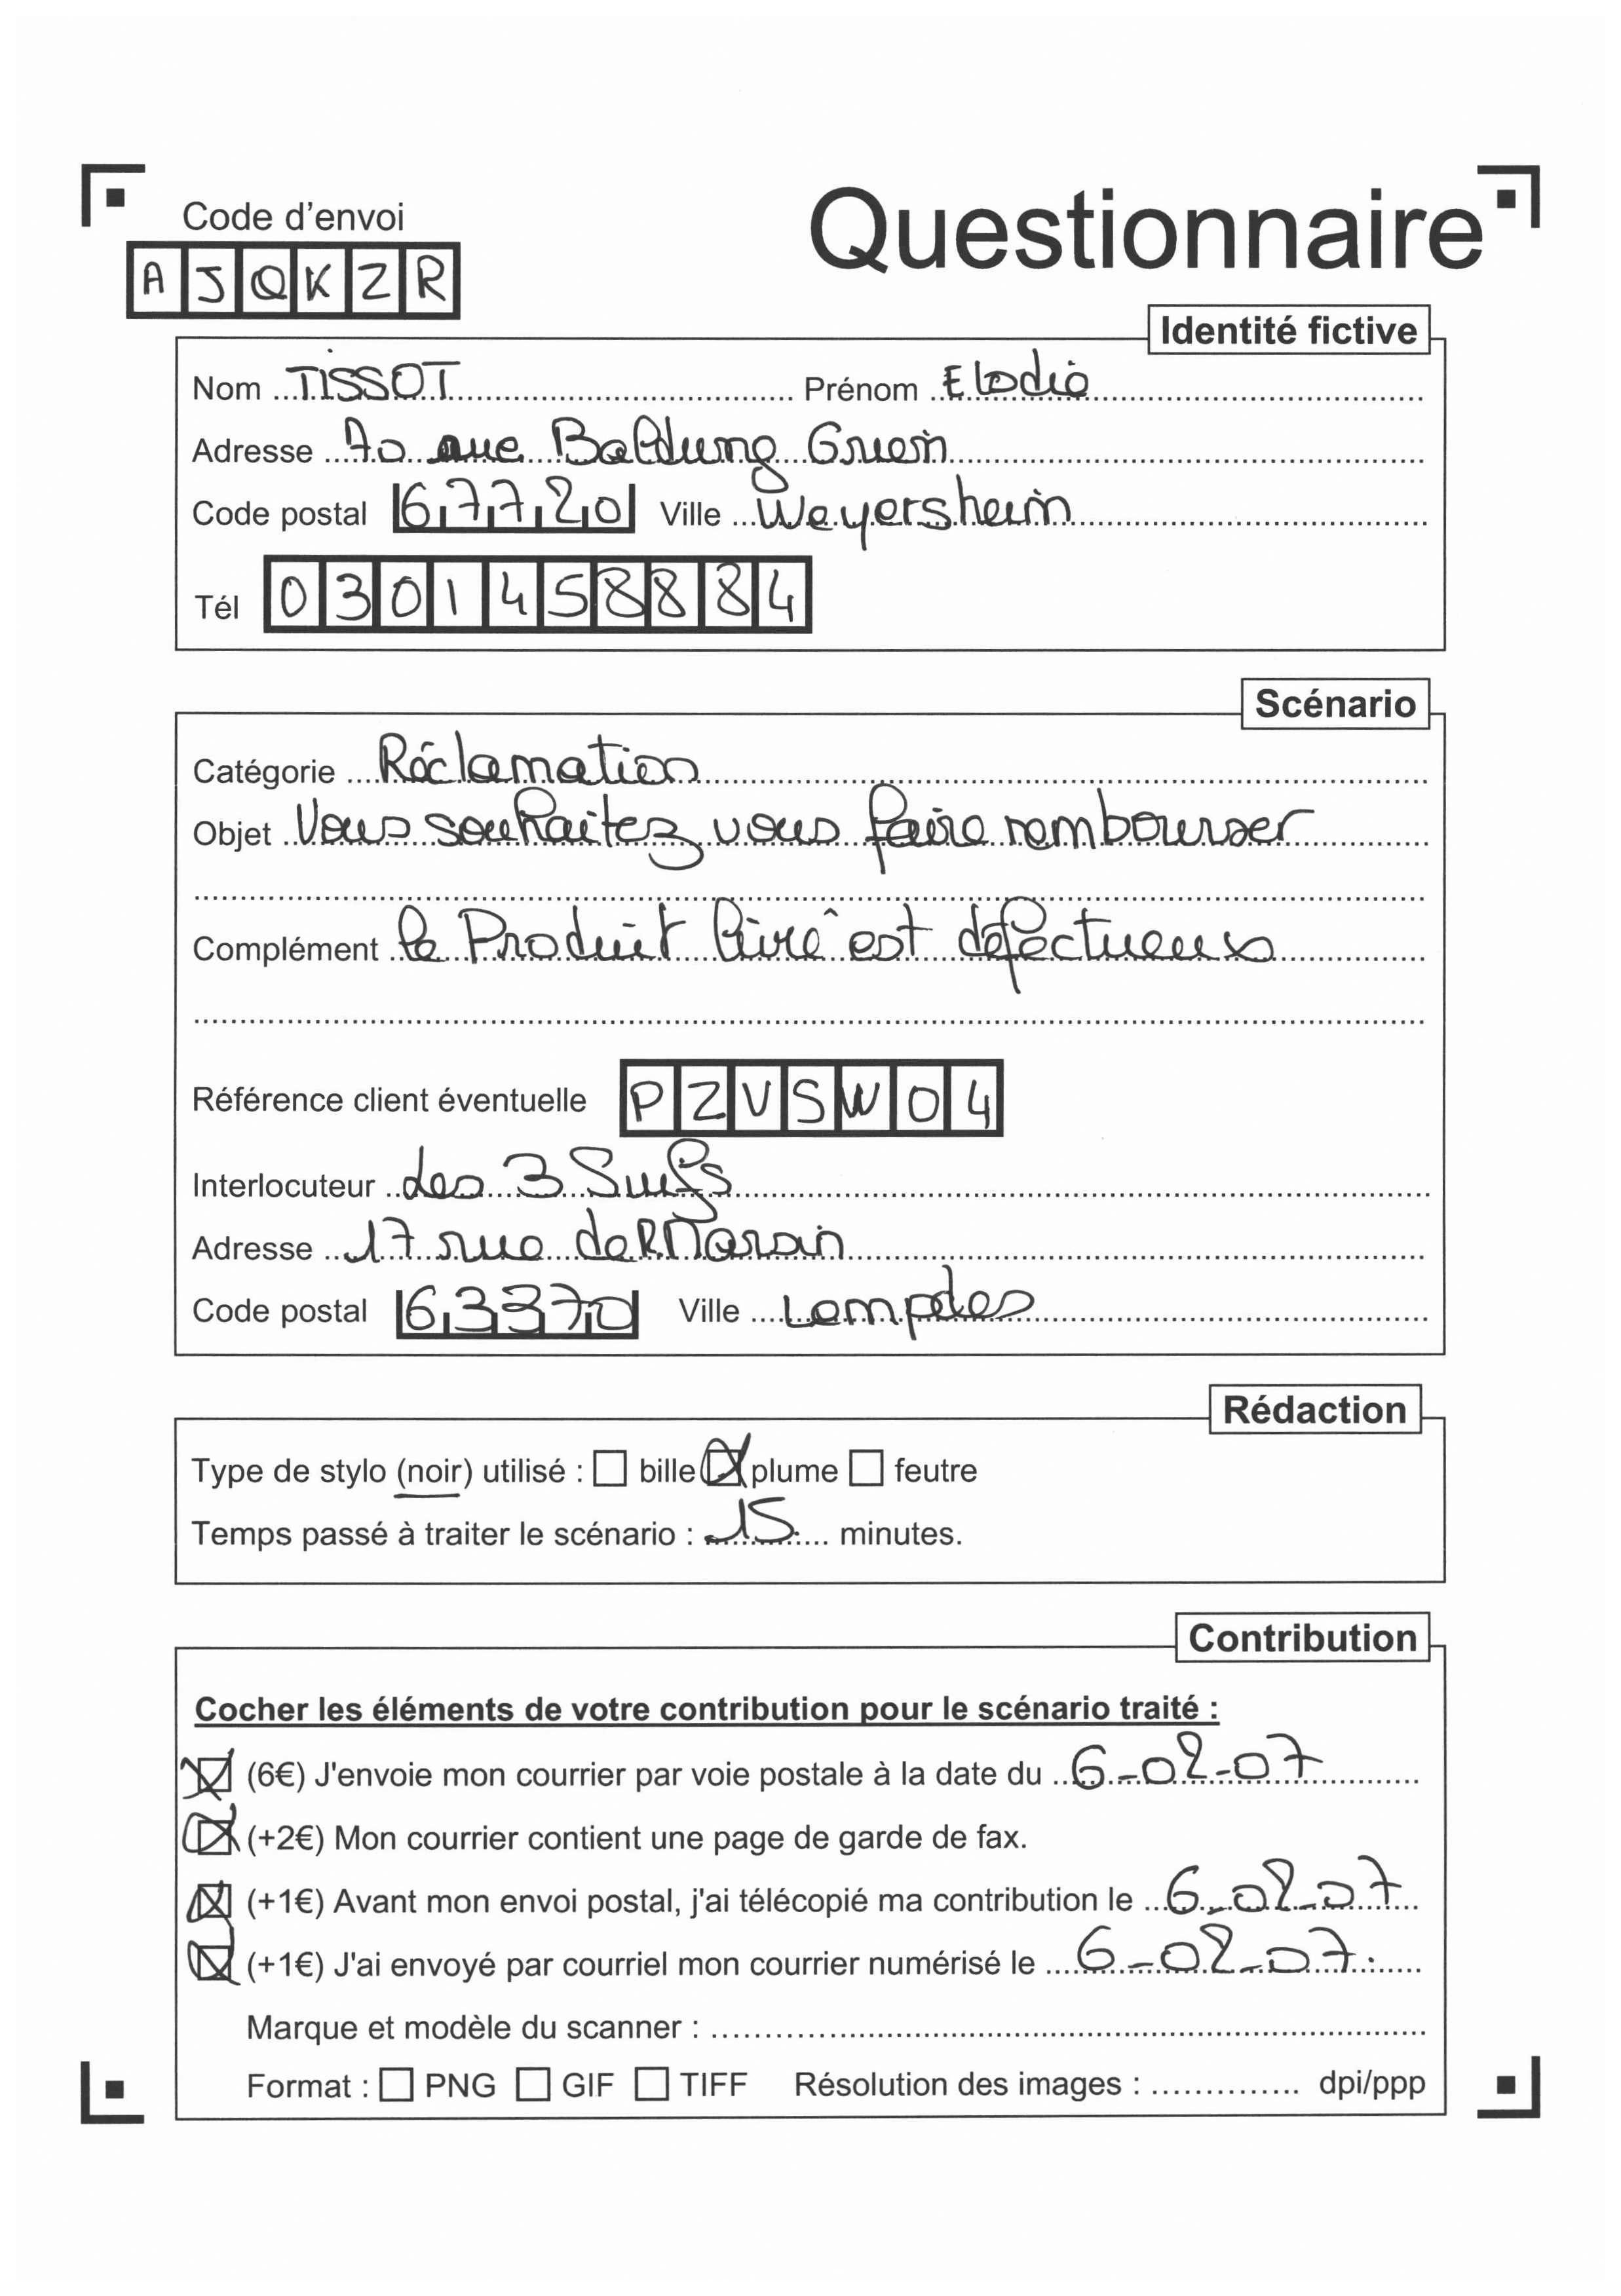 Code d'envoi
AJQKZR
Questionnaire
Identité fictive
Nom TISSOT Prénom Elodie
Adresse 70 rue Baldung Grien
Code postal 67720 Ville Weyersheim
Tél 0301458884
Scénario
Catégorie Réclamation
Objet Vous souhaitez vous faire rembourser
Complément le Produit livré est défectueux
Référence client éventuelle PZVSW04
Interlocuteur les 3 Suifs
Adresse 17 rue de Marsin
Code postal 63370 Ville Lempdes
Rédaction
Type de stylo (noir) utilisé : bille plume feutre
Temps passé à traiter le scénario : 15 minutes.
Contribution
Cocher les éléments de votre contribution pour le scénario traité :
(6€) J'envoie mon courrier par voie postale à la date du 6-02-07
(+2€) Mon courrier contient une page de garde de fax.
(+1€) Avant mon envoi postal, j'ai télécopié ma contribution le 6-02-07
(+1€) J'ai envoyé par courriel mon courrier numérisé le 6-02-07.
Marque et modèle du scanner :
Format : PNG GIF TIFF Résolution des images : dpi/ppp